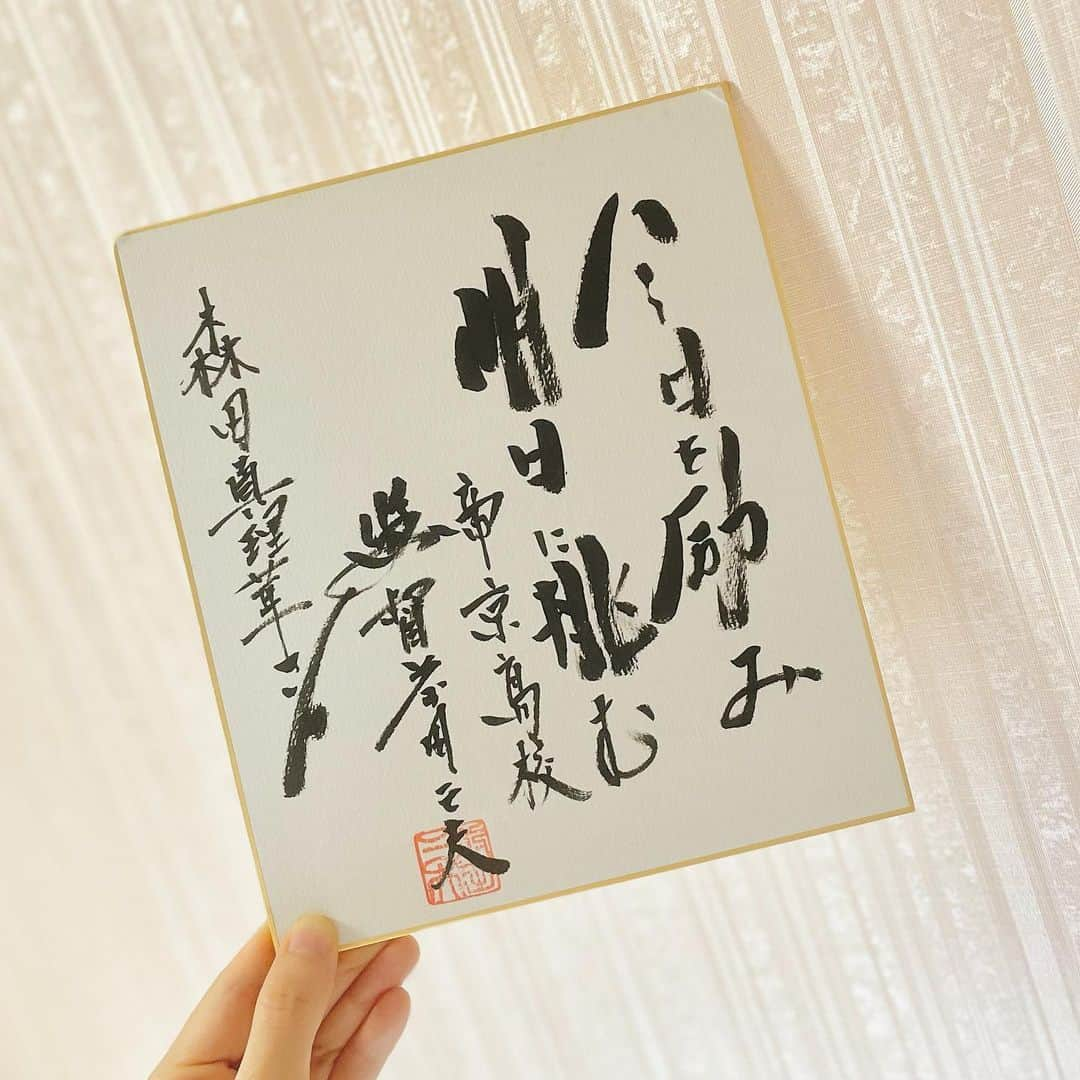 今日を励み
明日に挑む
帝京高校
監督 前田三夫
森田真理華さん